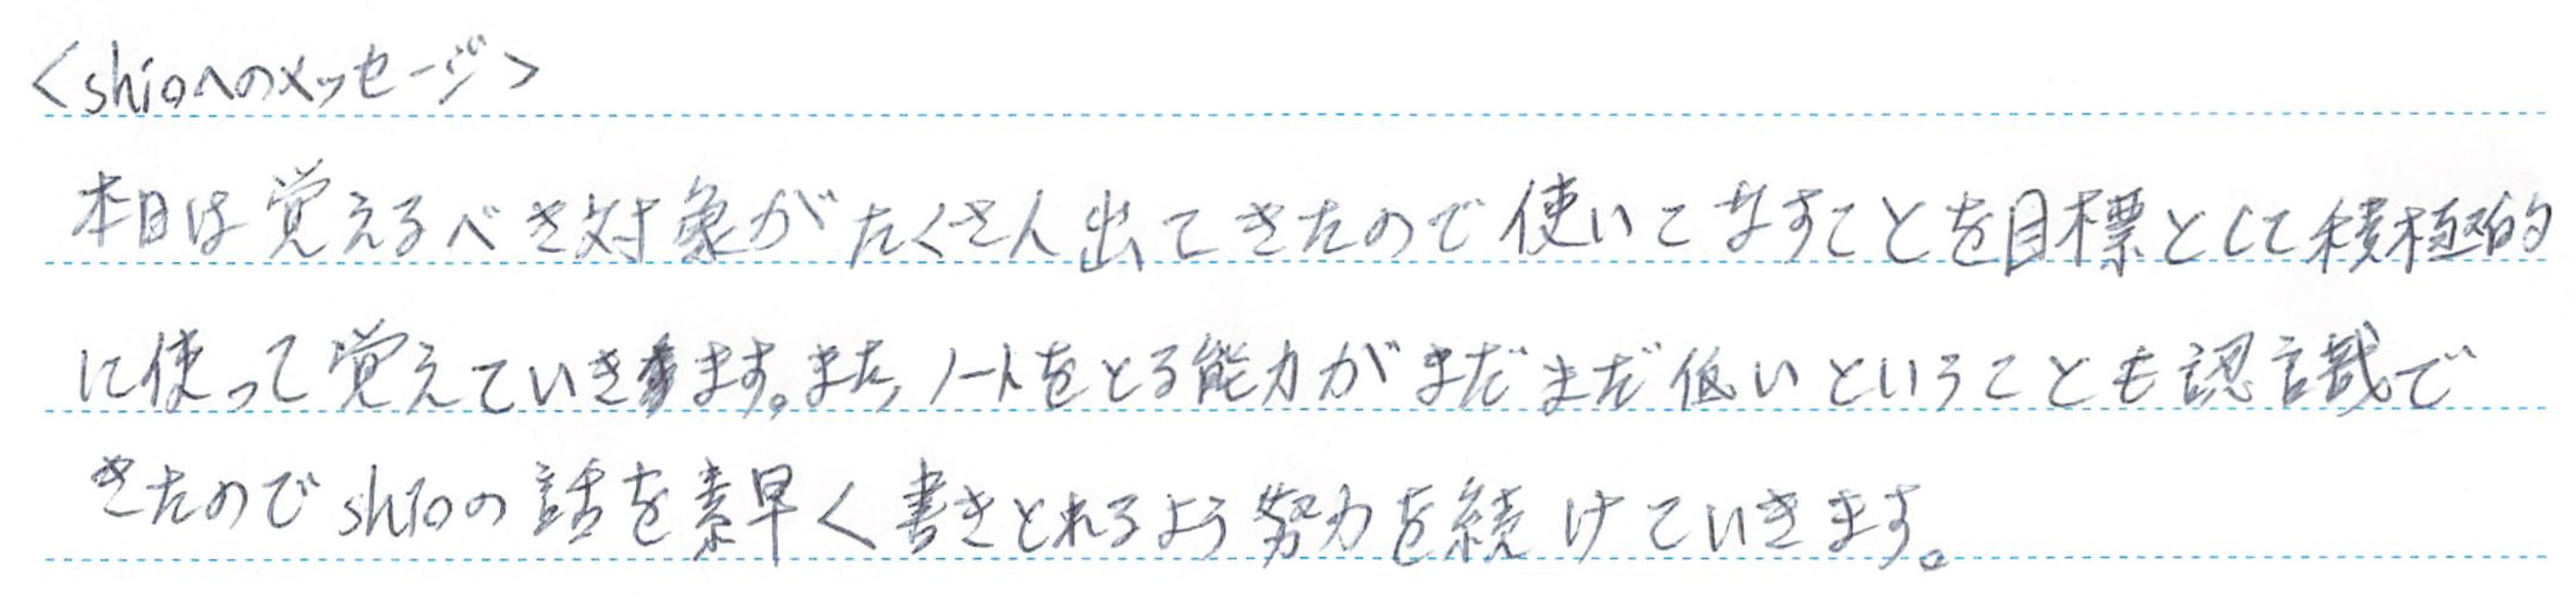 <shioへのメッセージ>
本日は覚えるべき対象がたくさん出てきたので使いこなすことを目標として積極的
に使って覚えていきます。また、ノートをとる能力がまだまだ低いということも認識で
きたのでshioの話を素早く書きとれるよう努力を続けていきます。